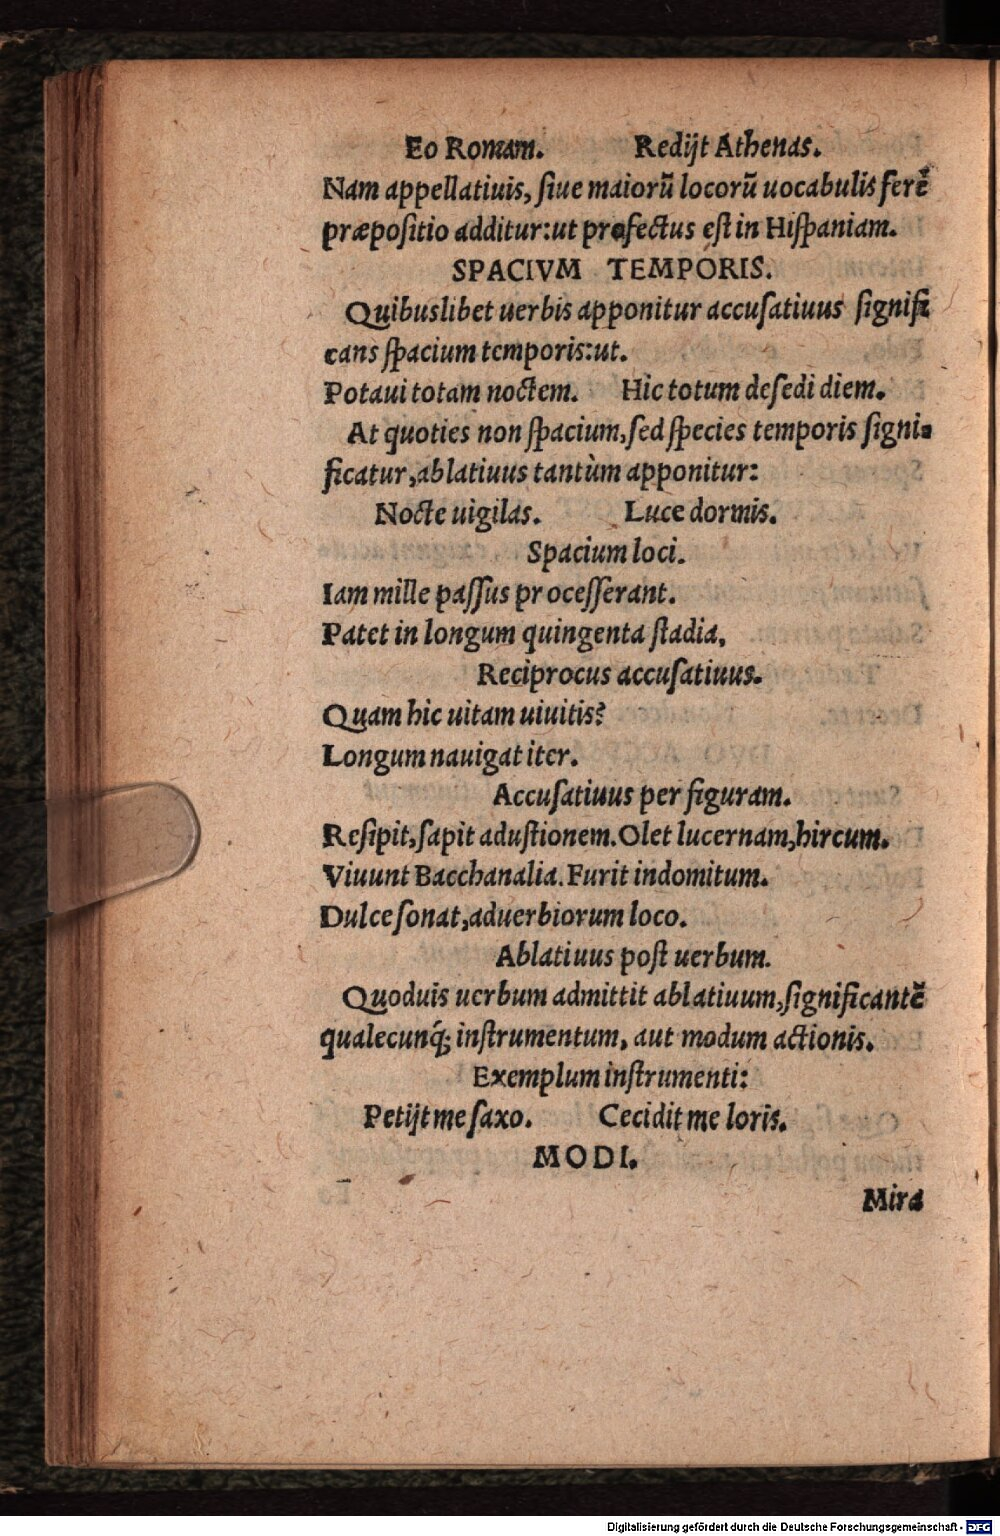 Eo Romam. Redijt Athenas.
Nam appellatiuis, ſiue maiorū locorū uocabulis ferẽ
præpoſitio additur: ut profectus eſt in Hiſpaniam.
SPACIVM TEMPORIS.
Quibuslibet uerbis apponitur accuſatiuus ſignifi
cans ſpacium temporis: ut.
Potaui totam noctem. Hic totum deſedi diem.
At quoties non ſpacium, ſed ſpecies temporis ſigni-
ficatur, ablatiuus tantùm apponitur:
Nocte uigilas. Luce dormis.
Spacium loci.
Iam mille paſſus proceſſerant.
Patet in longum quingenta ſtadia,
Reciprocus accuſatiuus.
Quam hic uitam uiuitis?
Longum nauigat iter.
Accuſatiuus per figuram.
Reſipit, ſapit aduſtionem. Olet lucernam, hircum.
Viuunt Bacchanalia. Furit indomitum.
Dulce ſonat, aduerbiorum loco.
Ablatiuus poſt uerbum.
Quoduis uerbum admittit ablatiuum, ſignificantẽ
qualecunq́; inſtrumentum, aut modum actionis.
Exemplum inſtrumenti:
Petijt me ſaxo. Cecidit me loris.
MODI.
Mira
Digitalisierung gefördert durch die Deutsche Forschungsgemeinschaft - DFG